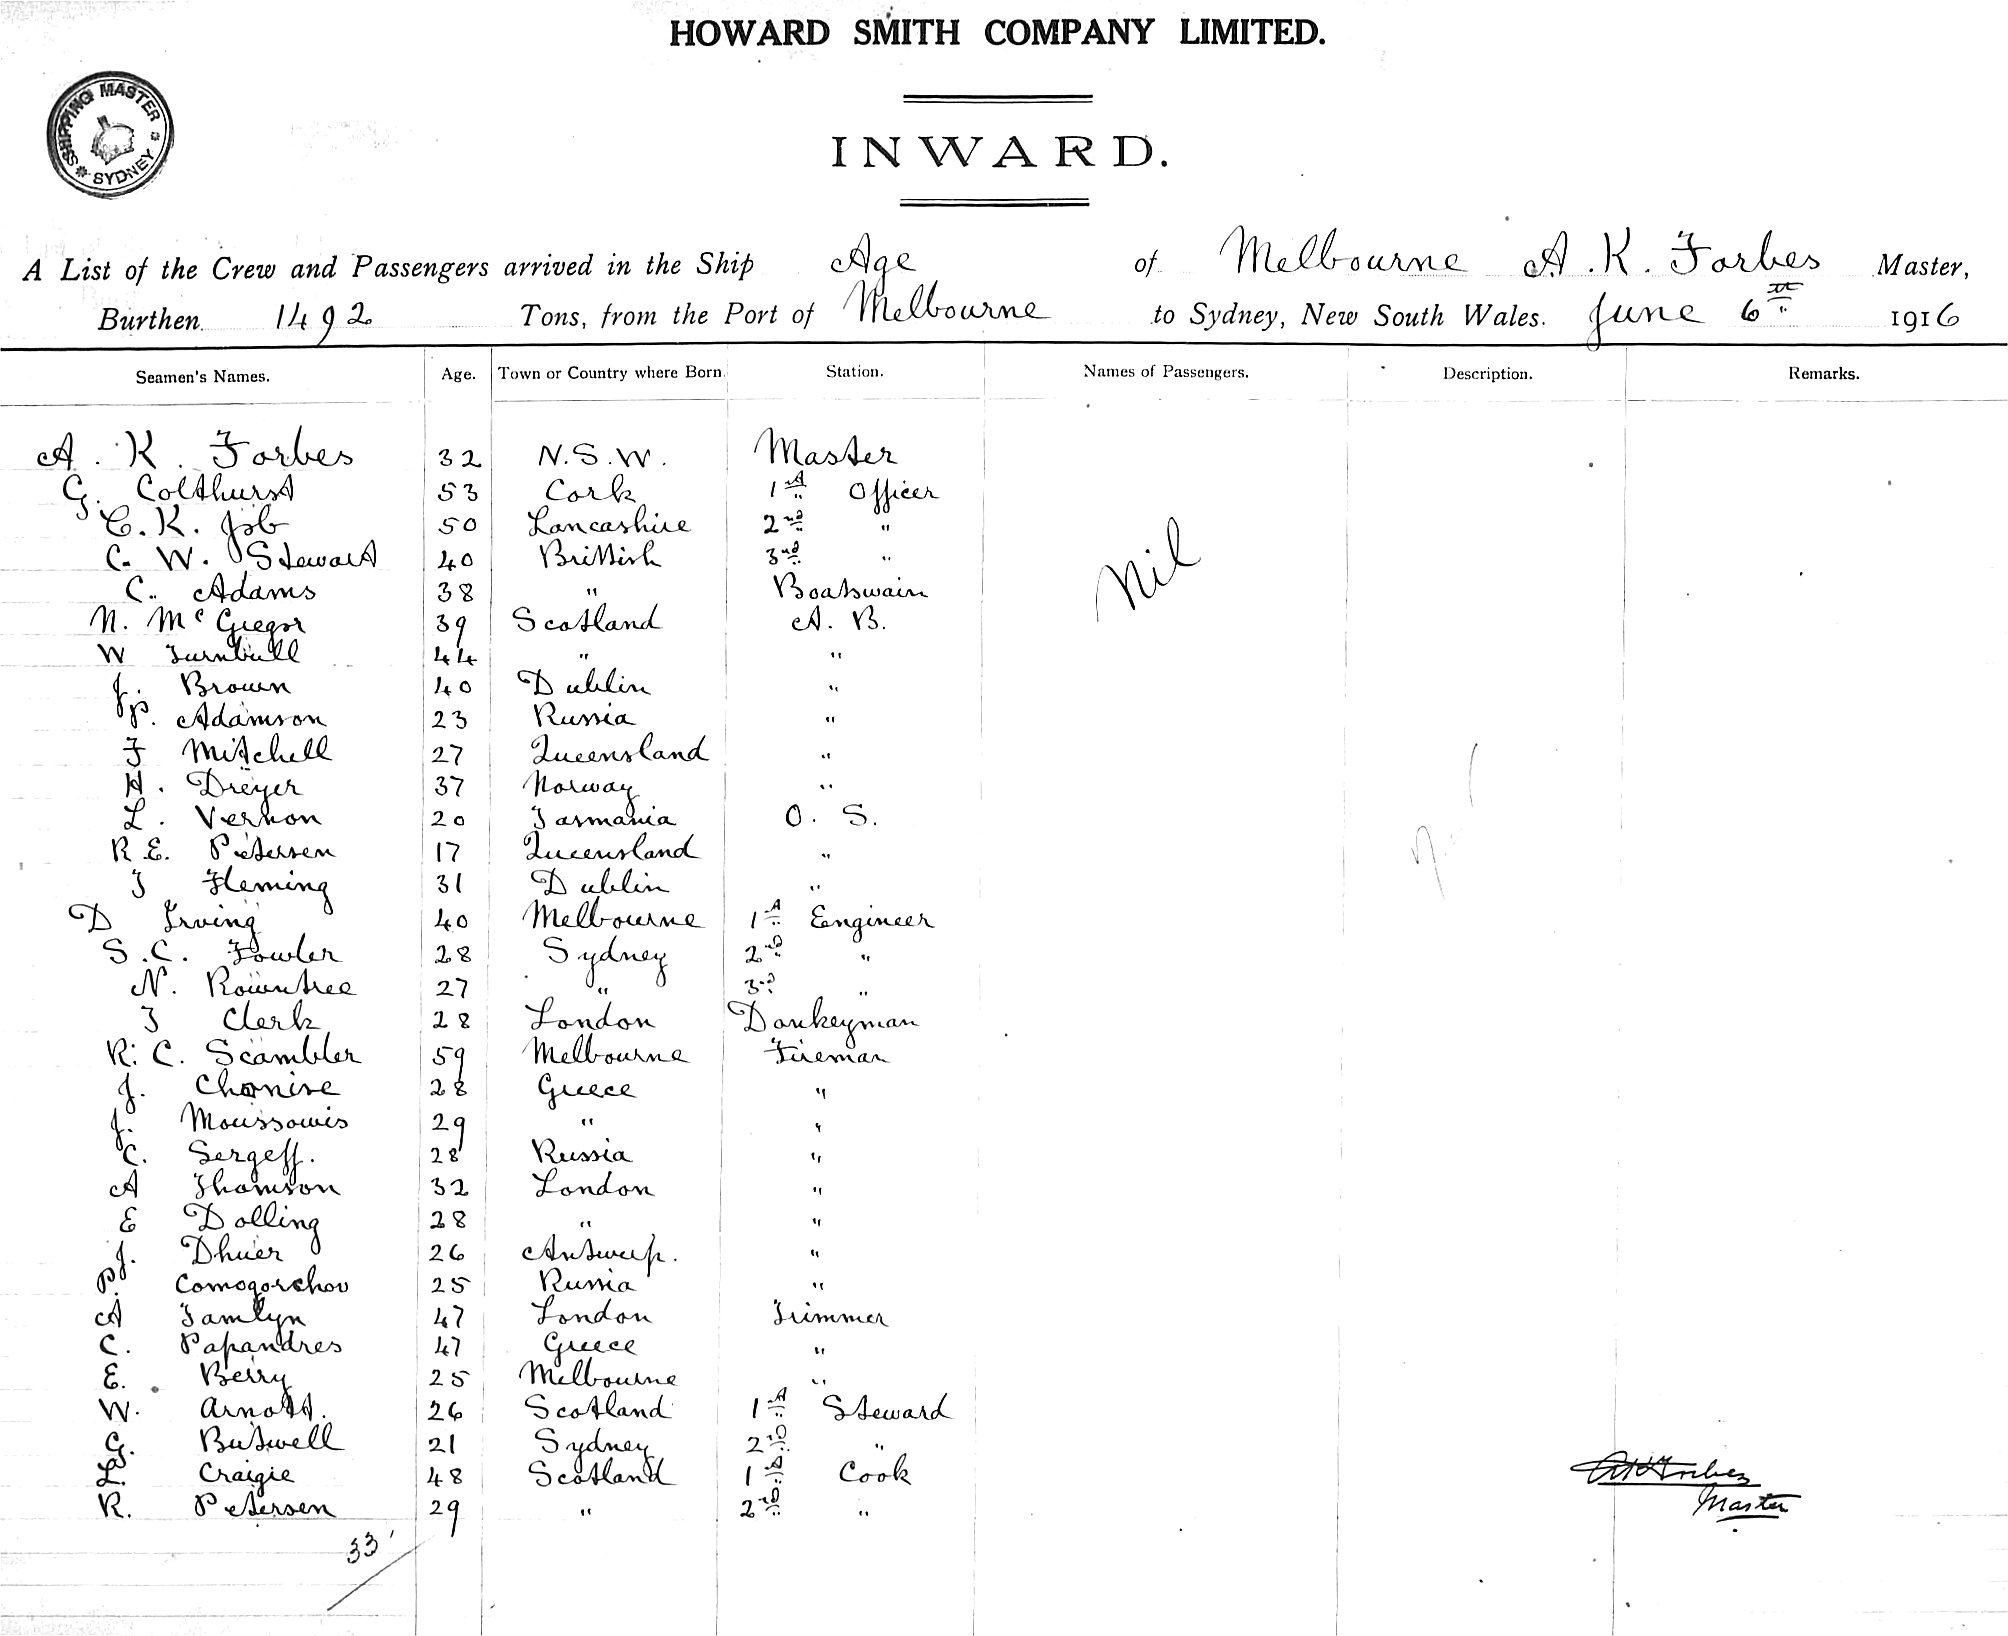 HOWARD SMITH COMPANY LIMITED.
SHIPPING MASTER
* SYDNEY *
INWARD.
A List of the Crew and Passengers arrived in the Ship Age of Melbourne A. K. Forbes Master,
Burthen 1492 Tons, from the Port of Melbourne to Sydney, New South Wales. June 6th 1916
Seamen's Names. Age. Town or Country where Born. Station. Names of Passengers. Description. Remarks.
A. K. Forbes 32 N.S.W. Master
G. Colthurst 53 Cork 1st Officer
C. K. Job 50 Lancashire 2nd "
C. W. Stewart 40 Brittish 3rd "
Nil
C. Adams 38 " Boatswain
N. McGregor 39 Scotland A. B.
W Turnbull 44 " "
J. Brown 40 Dublin "
P. Adamson 23 Russia "
F Mitchell 27 Queensland "
H. Dreyer 37 Norway "
L. Vernon 20 Tasmania O. S.
R.E. Petersen 17 Queensland "
J Fleming 31 Dublin "
D Irving 40 Melbourne 1st Engineer
S.C. Fowler 28 Sydney 2nd "
N. Rowntree 27 " 3rd "
J Clerk 28 London Donkeyman
R. C. Scambler 59 Melbourne Fireman
J. Chonise 28 Greece "
J. Moussouris 29 " "
C. Sergeff. 28 Russia "
A Thomson 32 London "
E Dolling 28 " "
J. Dhuer 26 Antwerp. "
P. Comogorchov 25 Russia "
A Tamlyn 47 London Trimmer
C. Papandres 47 Greece "
E. Berry 25 Melbourne "
W. Arnott. 26 Scotland 1st Steward
G. Butwell 21 Sydney 2nd "
L. Craigie 48 Scotland 1st Cook
R. Petersen 29 " 2nd "
AKForbes
Master
33